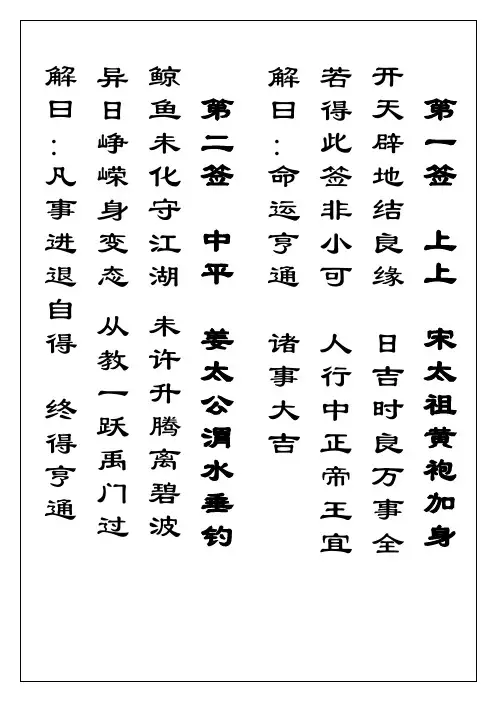 第一签 上上 宋太祖黄袍加身
开天辟地结良缘 日吉时良万事全
若得此签非小可 人行中正帝王宜
解曰：命运亨通 诸事大吉
第二签 中平 姜太公渭水垂钓
鲸鱼未化守江湖 未许升腾离碧波
异日峥嵘身变态 从教一跃禹门过
解曰：凡事进退自得 终得亨通